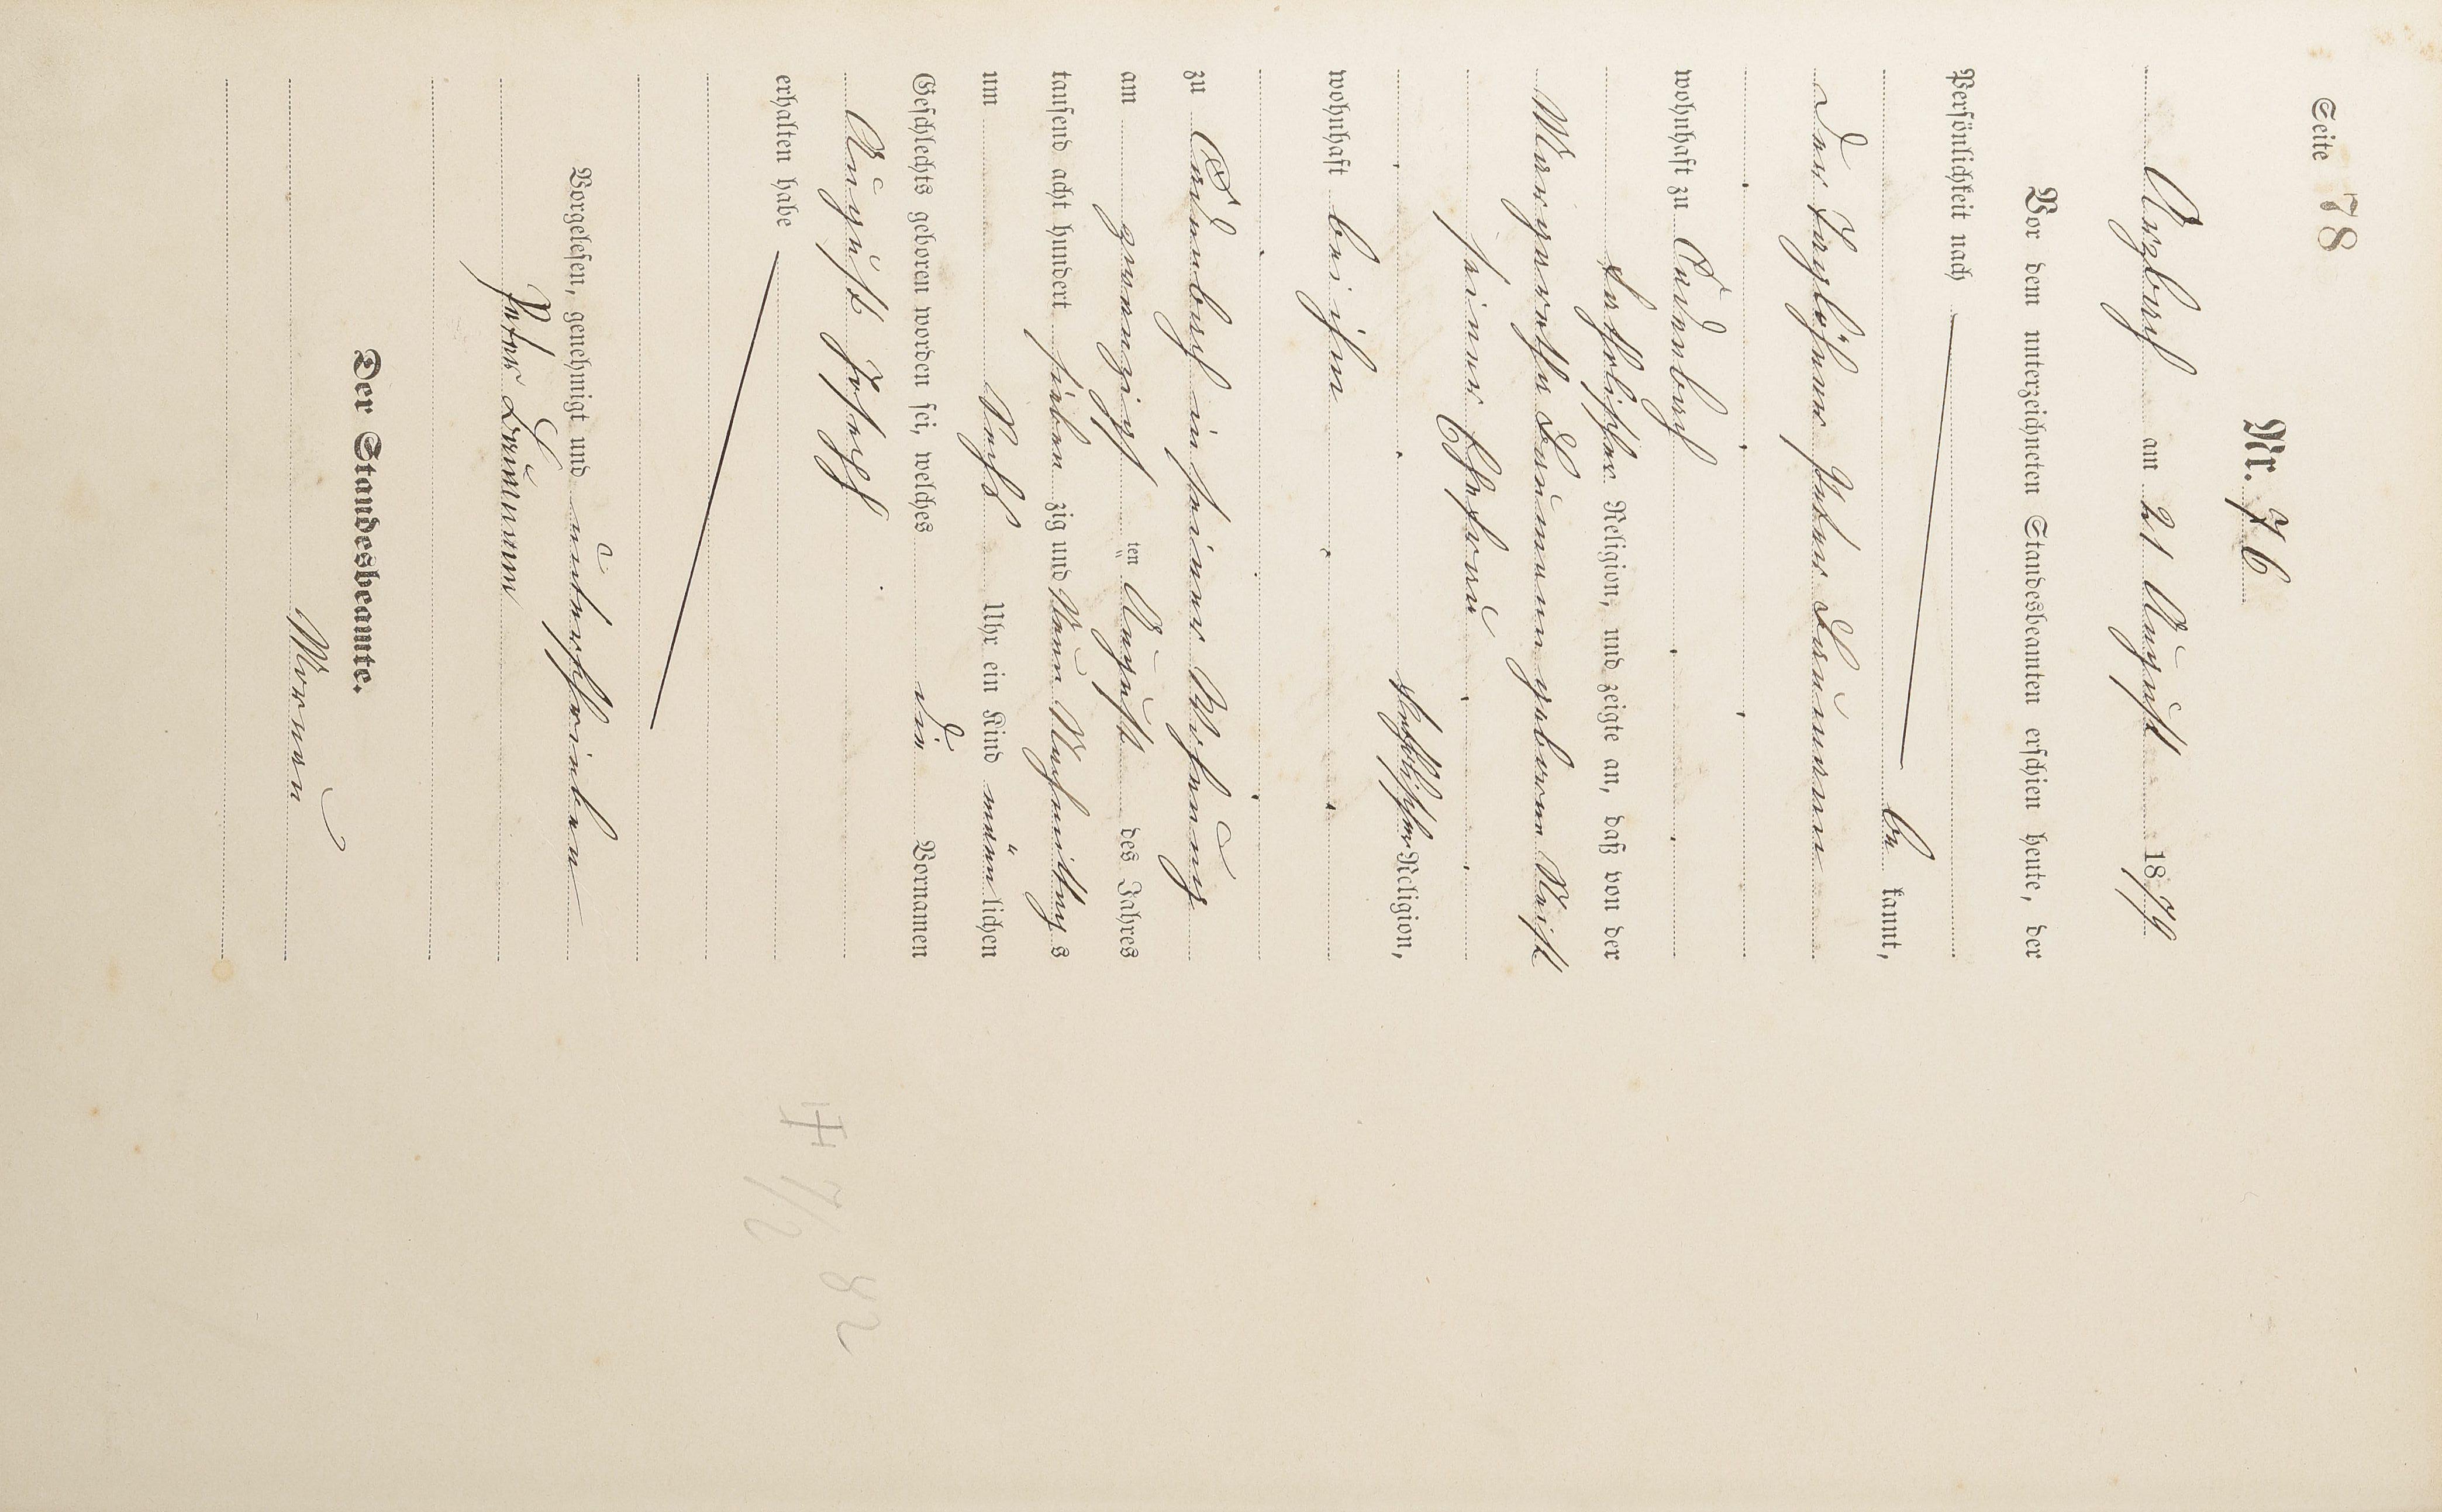 Seite 78
Nr. 76
Arzbach am 21 August 1879
Vor dem unterzeichneten Standesbeamten erschien heute, der
Persönlichkeit nach
be kannt,
der Taglöhner Peter Laumann
wohnhaft zu Cadenbach
katholischer Religion, und zeigte an, daß von der
Margaretha Laumann geborne
seiner Ehefrau
katholischer Religion,
wohnhaft bei ihm
zu Cadenbach in seiner Wohnung
am zwanzigs ten August des Jahres
tausend acht hundert sieben zig und Neun Nachmittag s
um Sechs Uhr ein Kind männ lichen
Geschlechts geboren worden sei, welches die Vornamen
August Joseph
erhalten habe
Vorgelesen, genehmigt und unterschrieben
Peter Laumann
Der Standesbeamte.
† 7/2 82